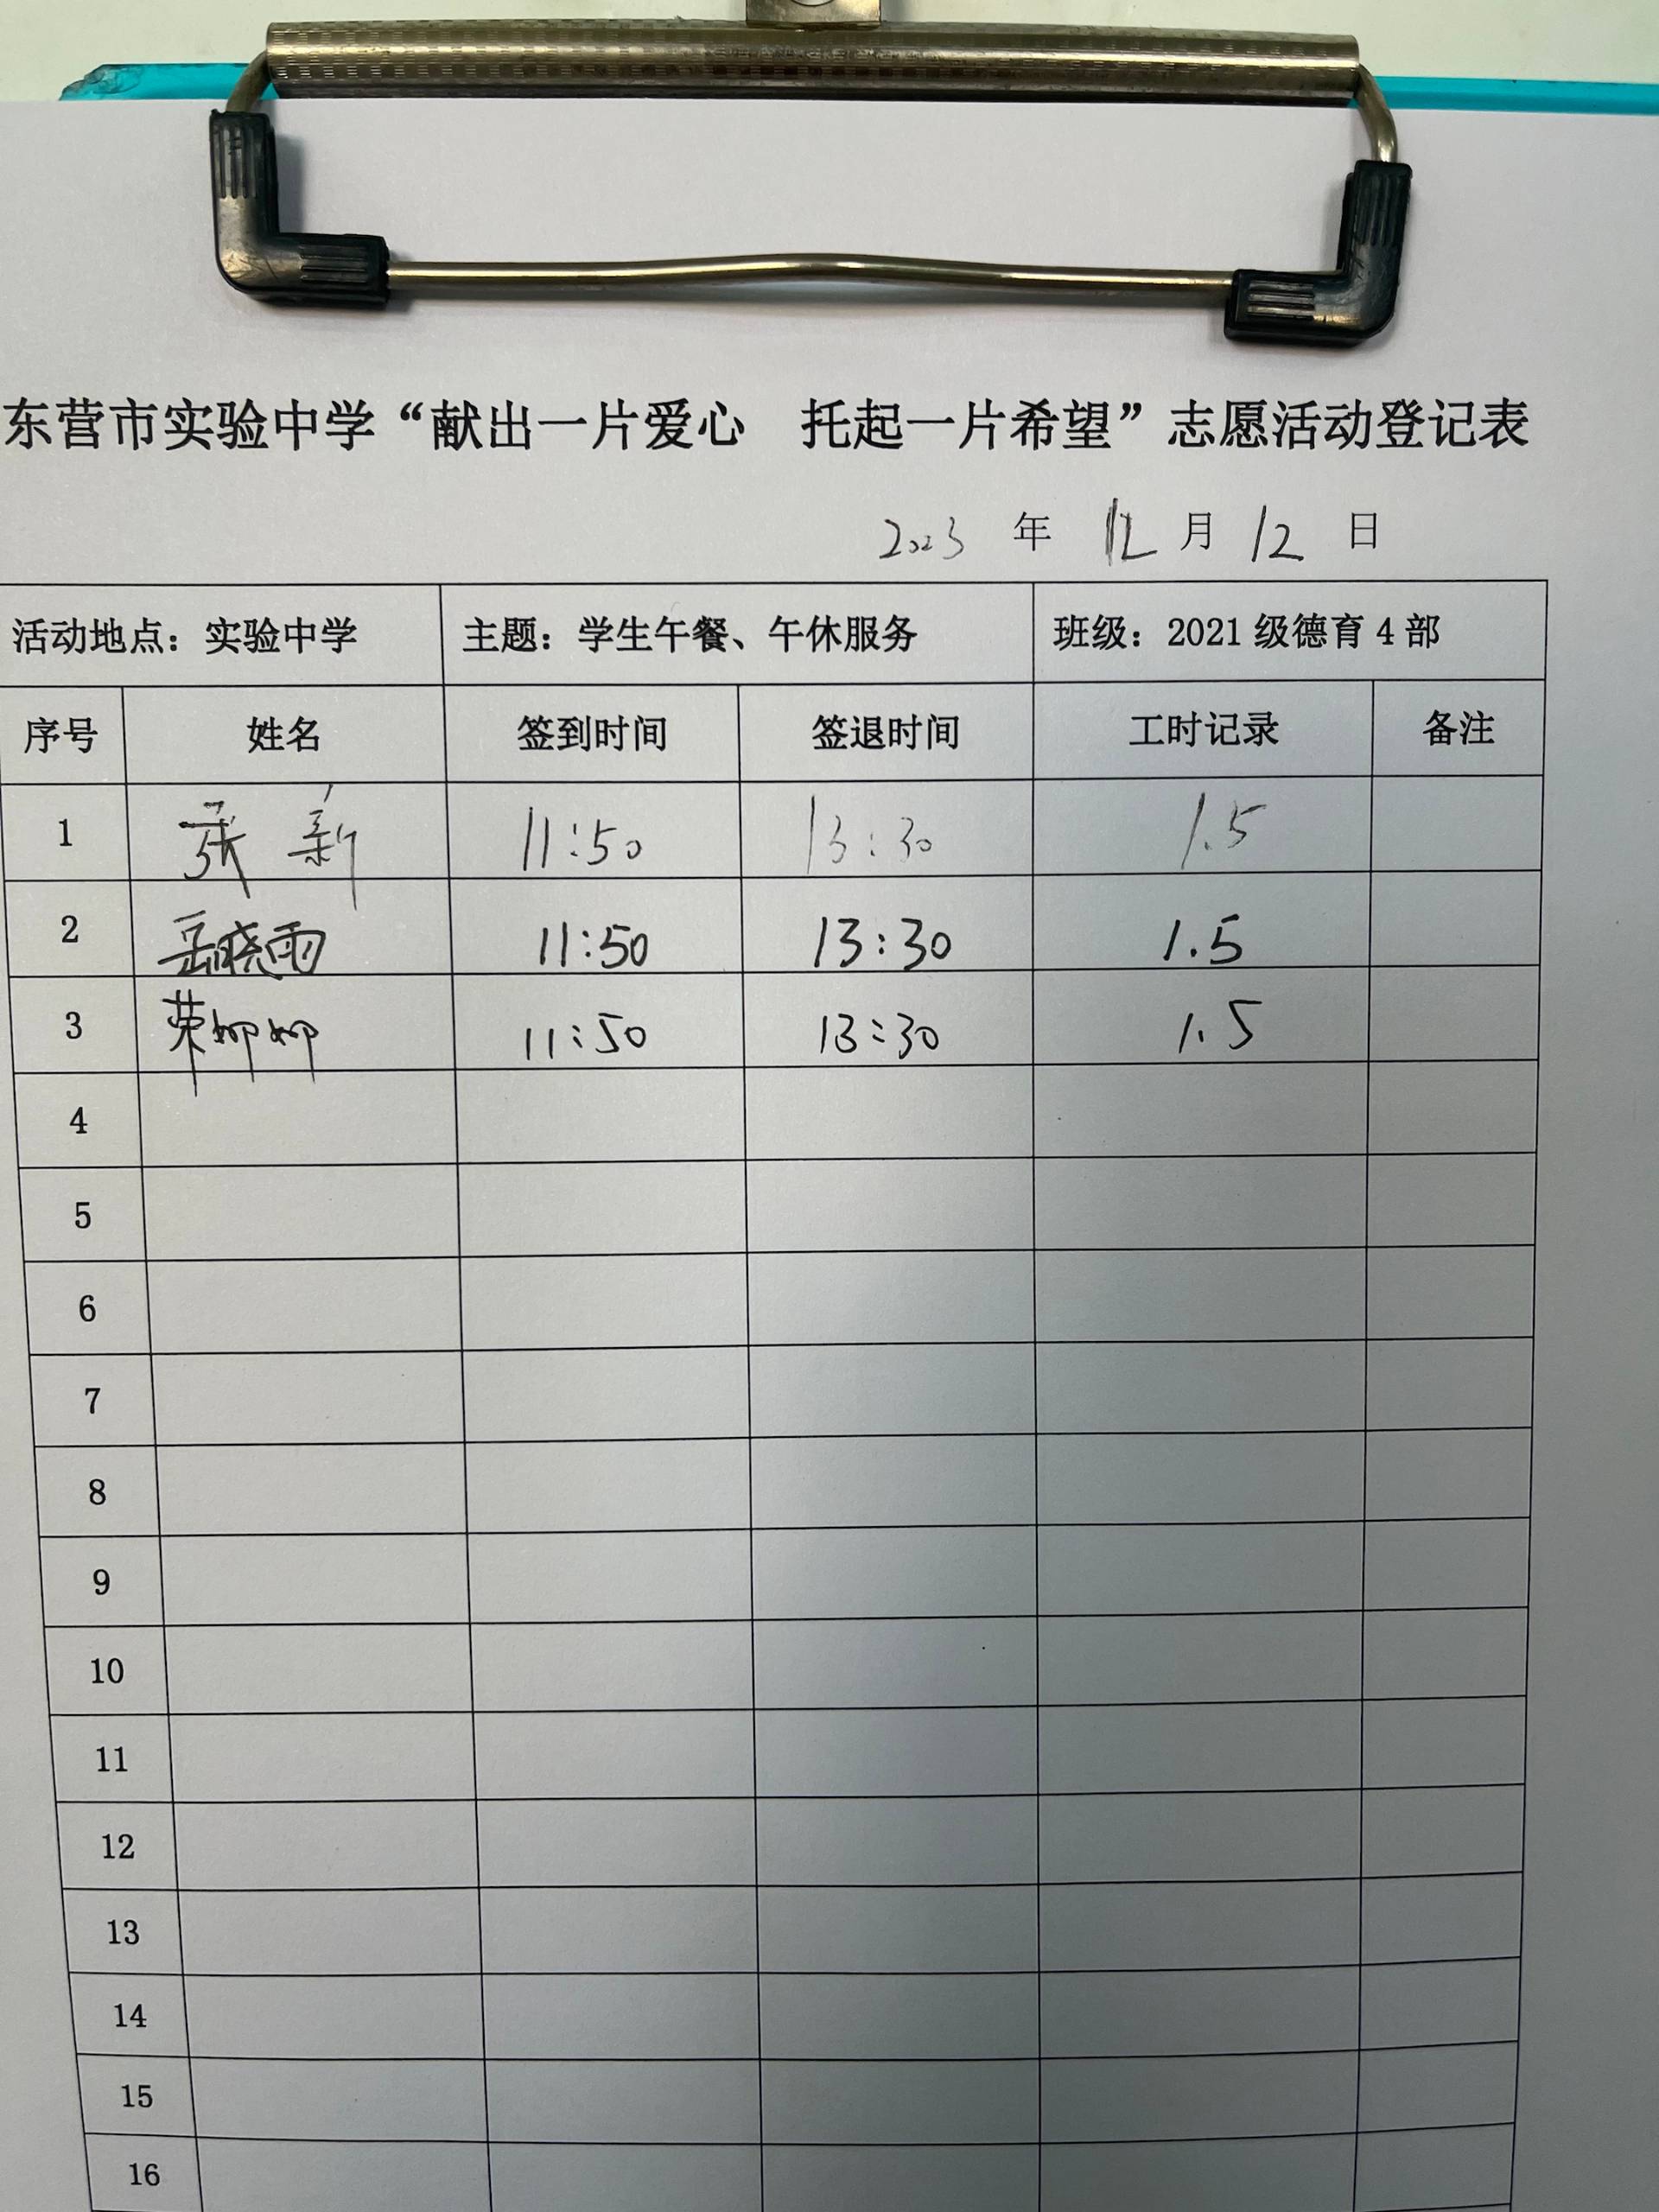 东营市实验中学“献出一片爱心　托起一片希望”志愿活动登记表
2023 年 12 月 12 日
活动地点：实验中学 主题：学生午餐、午休服务 班级：2021 级德育 4 部
序号 姓名 签到时间 签退时间 工时记录 备注
1 张新 11:50 13:30 1.5
2 岳晓雨 11:50 13:30 1.5
3 荣柳柳 11:50 13:30 1.5
4
5
6
7
8
9
10
11
12
13
14
15
16